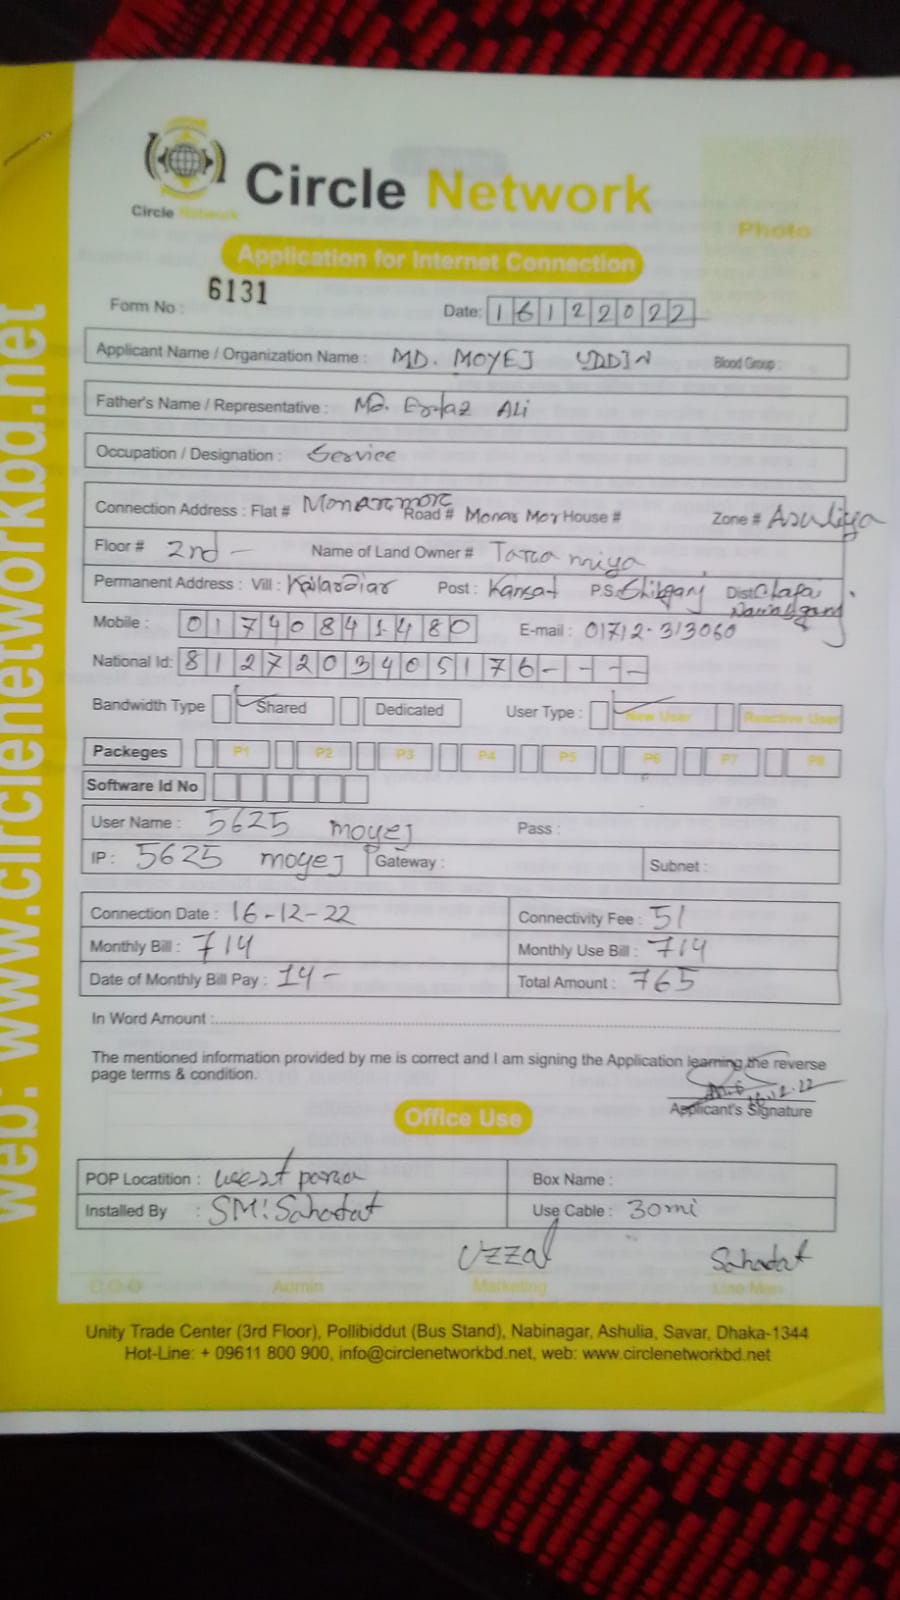 Circle Network
Circle Network
Photo
Application for Internet Connection
Form No : 6131
Date: 16122022
Applicant Name / Organization Name : MD. MOYEJ UDDIN Blood Group :
Father's Name / Representative : Md. Ali
Occupation / Designation : Service
Connection Address : Flat # Monarmore Road # Monar Mor House # Zone # Asuliya
Floor # 2nd - Name of Land Owner # Tara miya
Permanent Address : Vill : Post : Kansat P.S. Shibganj Dist: Chapai
Nawabganj
Mobile : 01740841480 E-mail : 01712-313060
National Id: 8127203405176- - - -
Bandwidth Type Shared Dedicated User Type : New User Reactive User
Packeges P1 P2 P3 P4 P5 P6 P7 P8
Software Id No
User Name : 5625 moyej Pass :
IP : 5625 moyej Gateway : Subnet :
Connection Date : 16-12-22 Connectivity Fee : 51
Monthly Bill : 714 Monthly Use Bill : 714
Date of Monthly Bill Pay : 14 - Total Amount : 765
In Word Amount :
The mentioned information provided by me is correct and I am signing the Application learning the reverse
page terms & condition.
16.12.22
Applicant's Signature
Office Use
POP Locatition : west para Box Name :
Installed By : SM: Sahadat Use Cable : 30mi
Uzzal Sahadat
C.O.O Admin Marketing Line Man
Unity Trade Center (3rd Floor), Pollibiddut (Bus Stand), Nabinagar, Ashulia, Savar, Dhaka-1344
Hot-Line: + 09611 800 900, info@circlenetworkbd.net, web: www.circlenetworkbd.net
web: www.circlenetworkbd.net